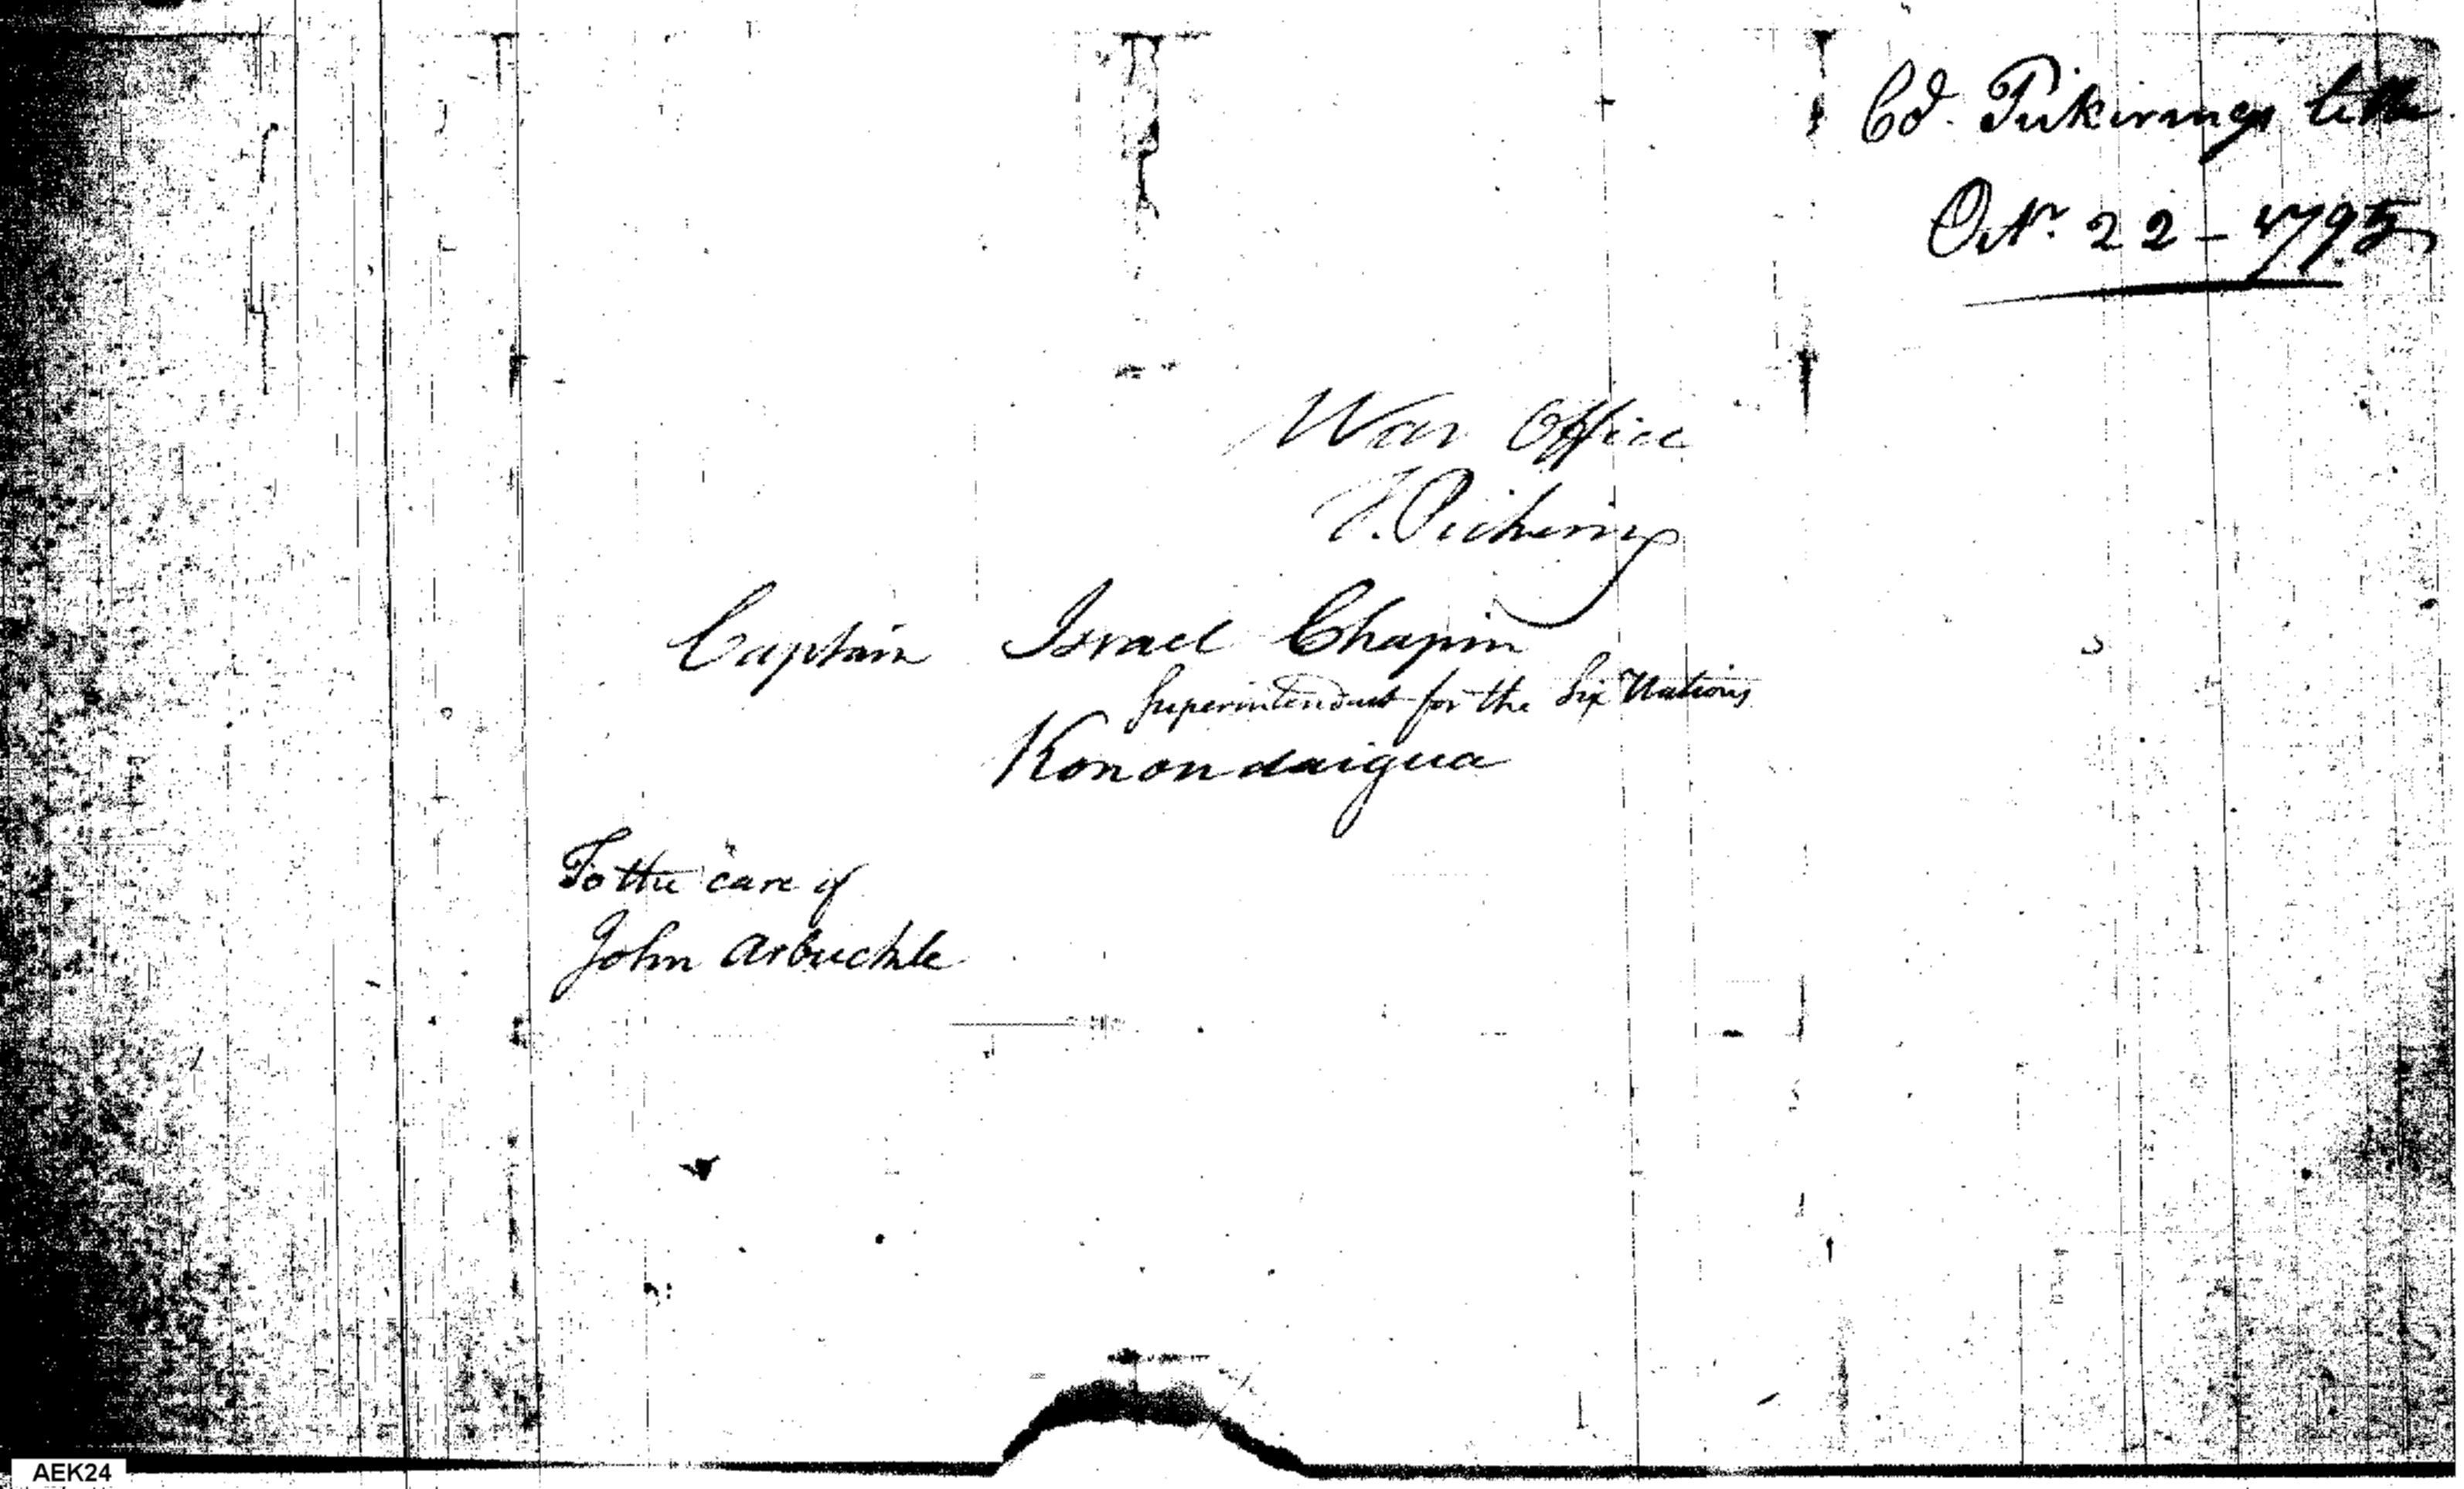 Col. Pickerings letter
Octr. 22 - 1795
War Office
T. Pickering
Captain Israel Chapin
Superintendant for the Six Nations
Konondaigua
To the care of
John Arbuckle
AEK24